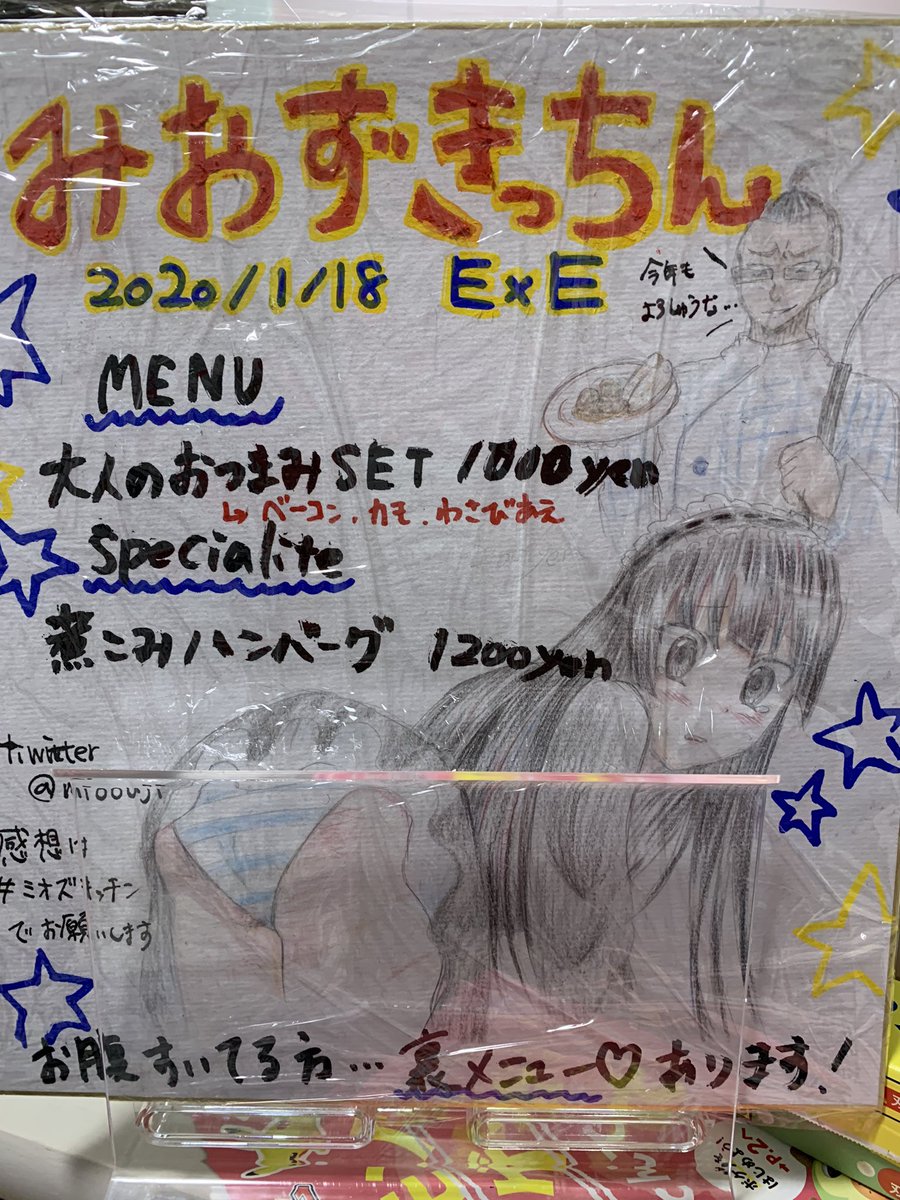 みおずきっちん
2020/1/18 E×E
今年も
よろしゅうな…
MENU
大人のおつまみSET 1000yen
↳ ベーコン、カモ、わさびあえ
Specialite
煮こみハンバーグ 1200yen
tiwitter
@mioouji
感想は
#ミオズキッチン
でお願いします
お腹すいてる方…裏メニュー♡あります!
→P.2へ